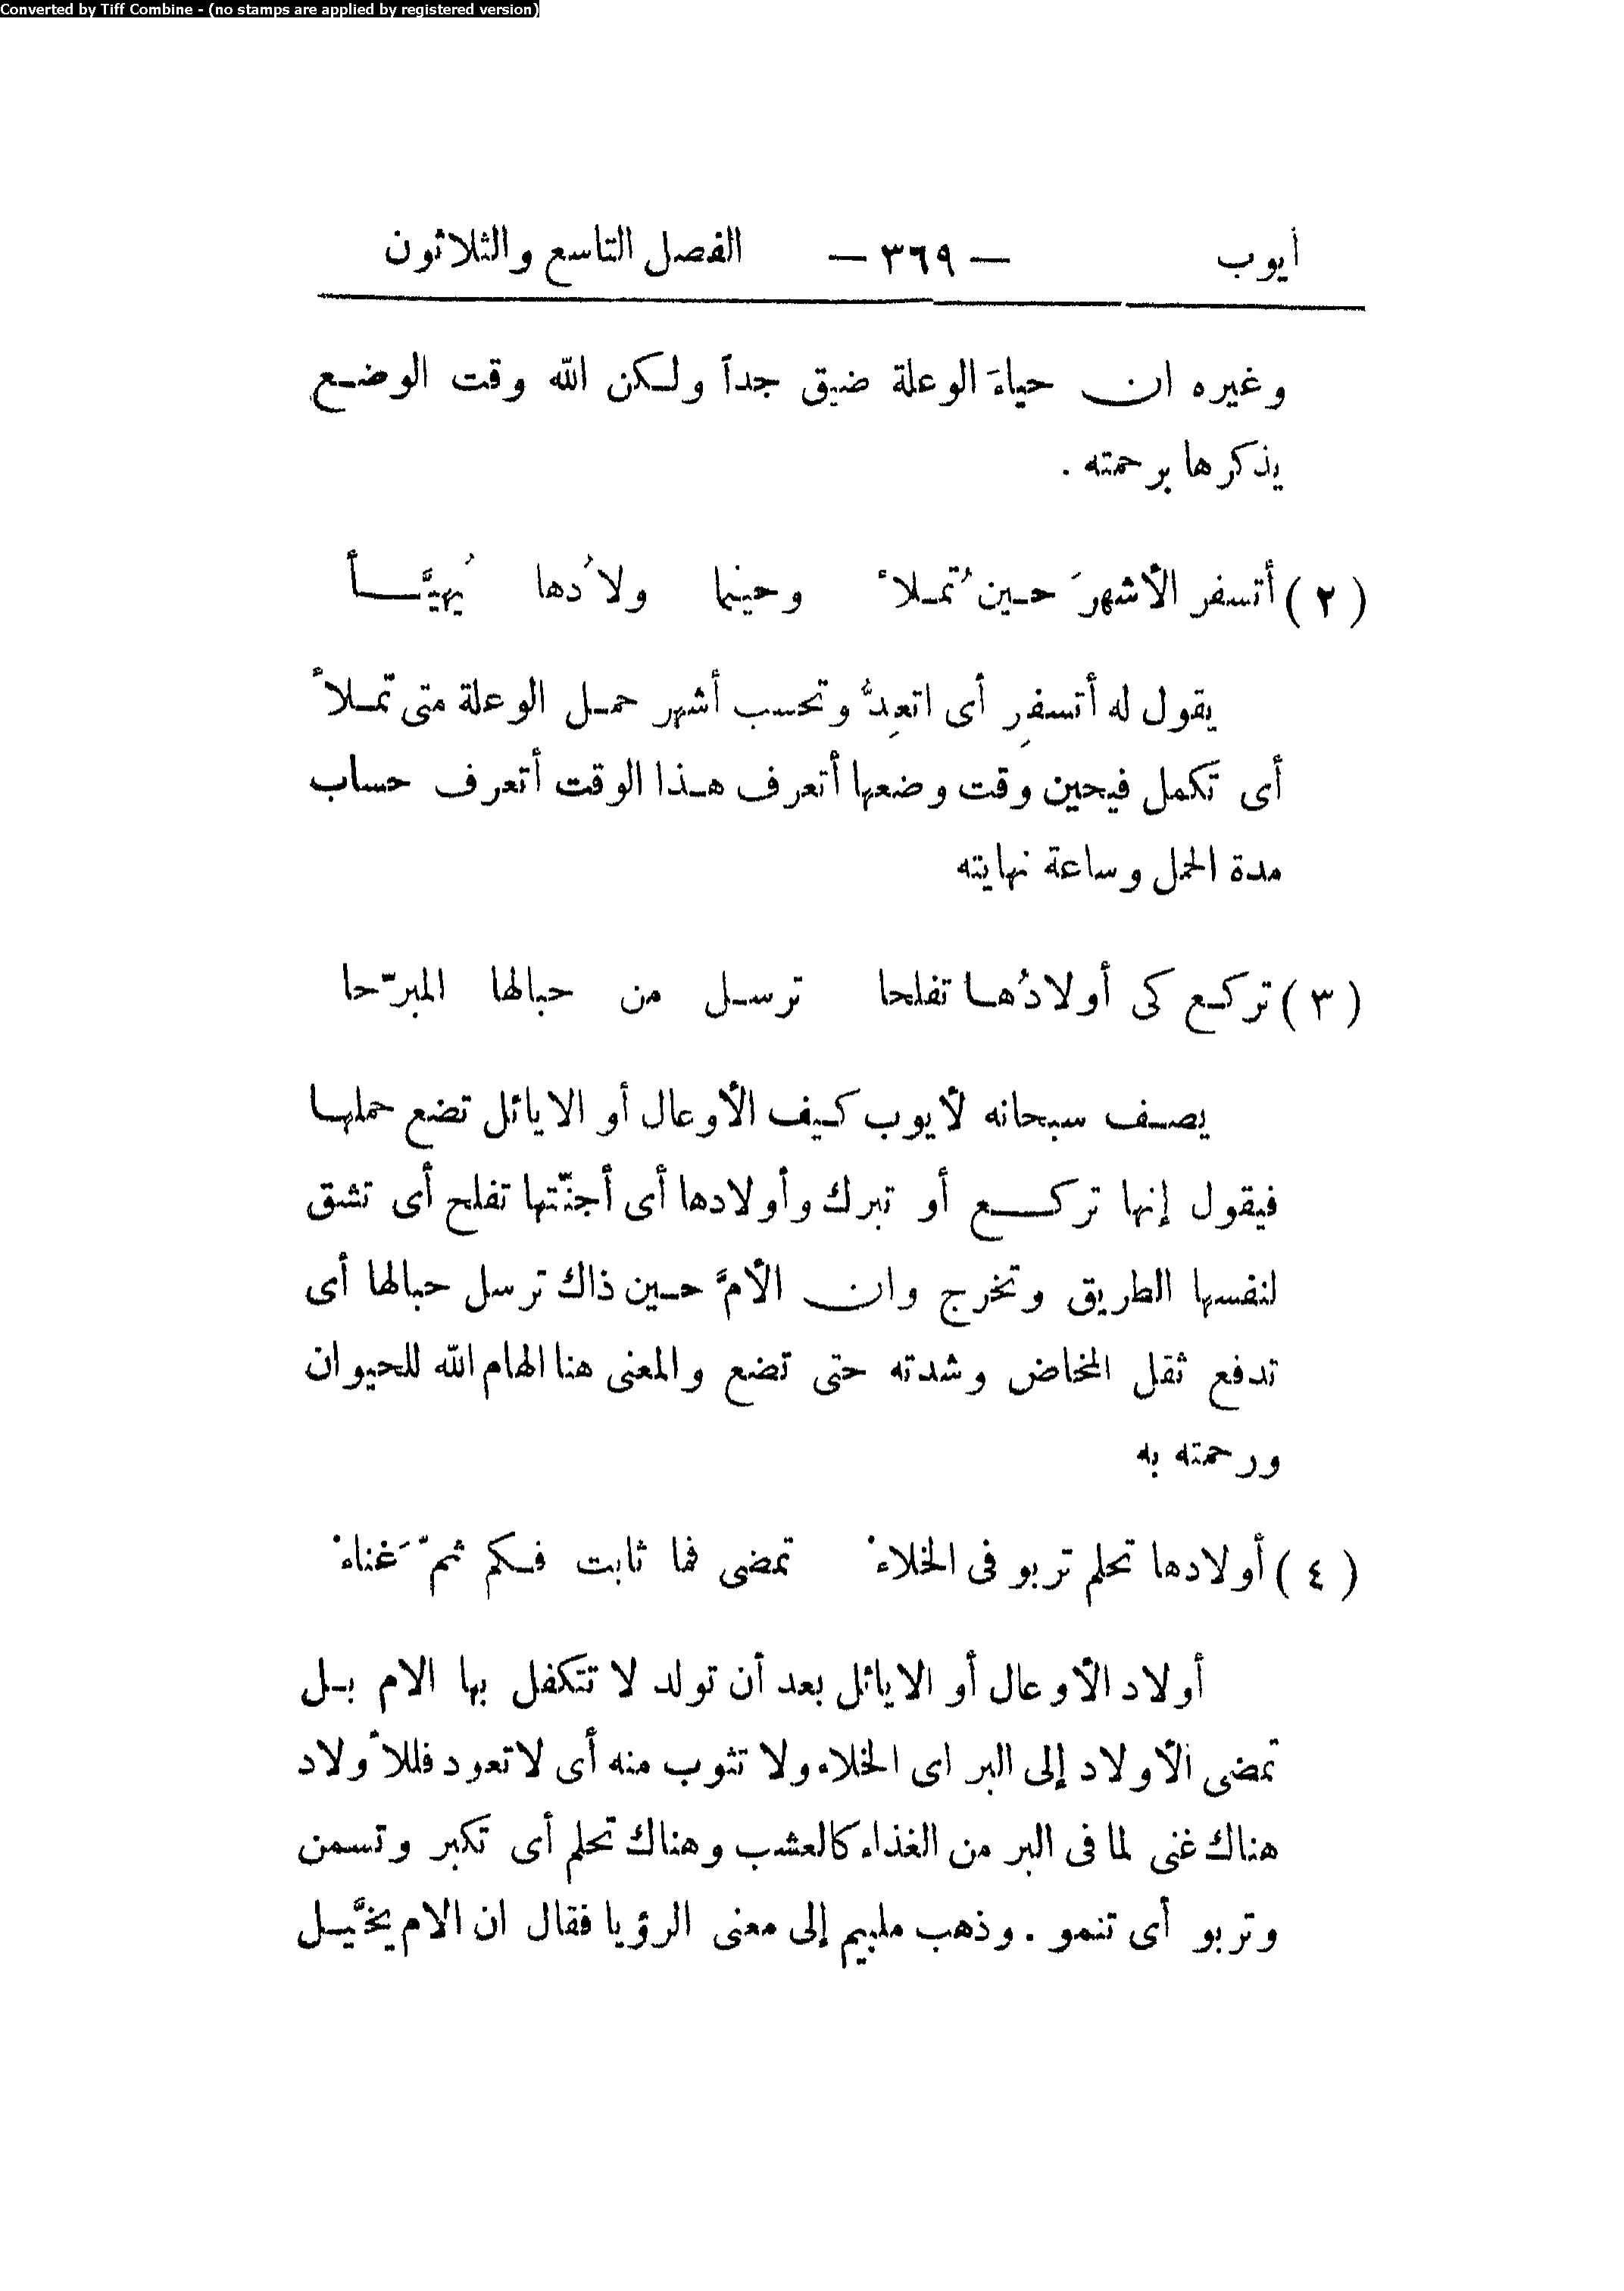 Converted by Tiff Combine - (no stamps are applied by registered version)
أيوب — ٣٦٩ — الفصل التاسع والثلاثون
وغيره ان حياءَ الوعلة ضيق جداً ولكن الله وقت الوضع
يذكرها برحمته .
(٢) أتسفر الأشهرَ حين تُملأ وحينما ولادُها يُهيَّأ
يقول له أتسفرِ أى اتعِدُّ وتحسب أشهر حمل الوعلة متى تملأ
أى تكمل فيحين وقت وضعها أتعرف هذا الوقت أتعرف حساب
مدة الحمل وساعة نهايته
(٣) تركع كى أولادُها تفلحا ترسل من حبالها المبرّحا
يصف سبحانه لأيوب كيف الأوعال أو الايائل تضع حملها
فيقول إنها تركع أو تبرك وأولادها أى أجنّتها تفلح أى تشق
لنفسها الطريق وتخرج وان الأمَّ حين ذاك ترسل حبالها أى
تدفع ثقل المخاض وشدته حتى تضع والمعنى هنا الهام الله للحيوان
ورحمته به
(٤) أولادها تحلم تربو فى الخلاءْ تمضى فما ثابت فكم ثمّ غَناءْ
أولاد الأوعال أو الايائل بعد أن تولد لا تتكفل بها الام بل
تمضى الأولاد إلى البر اى الخلاء ولا تثوب منه أى لا تعود فللأولاد
هناك غنى لما فى البر من الغذاء كالعشب وهناك تحلم أى تكبر وتسمن
وتربو أى تنمو . وذهب ملبيم إلى معنى الرؤيا فقال ان الام يخيَّل